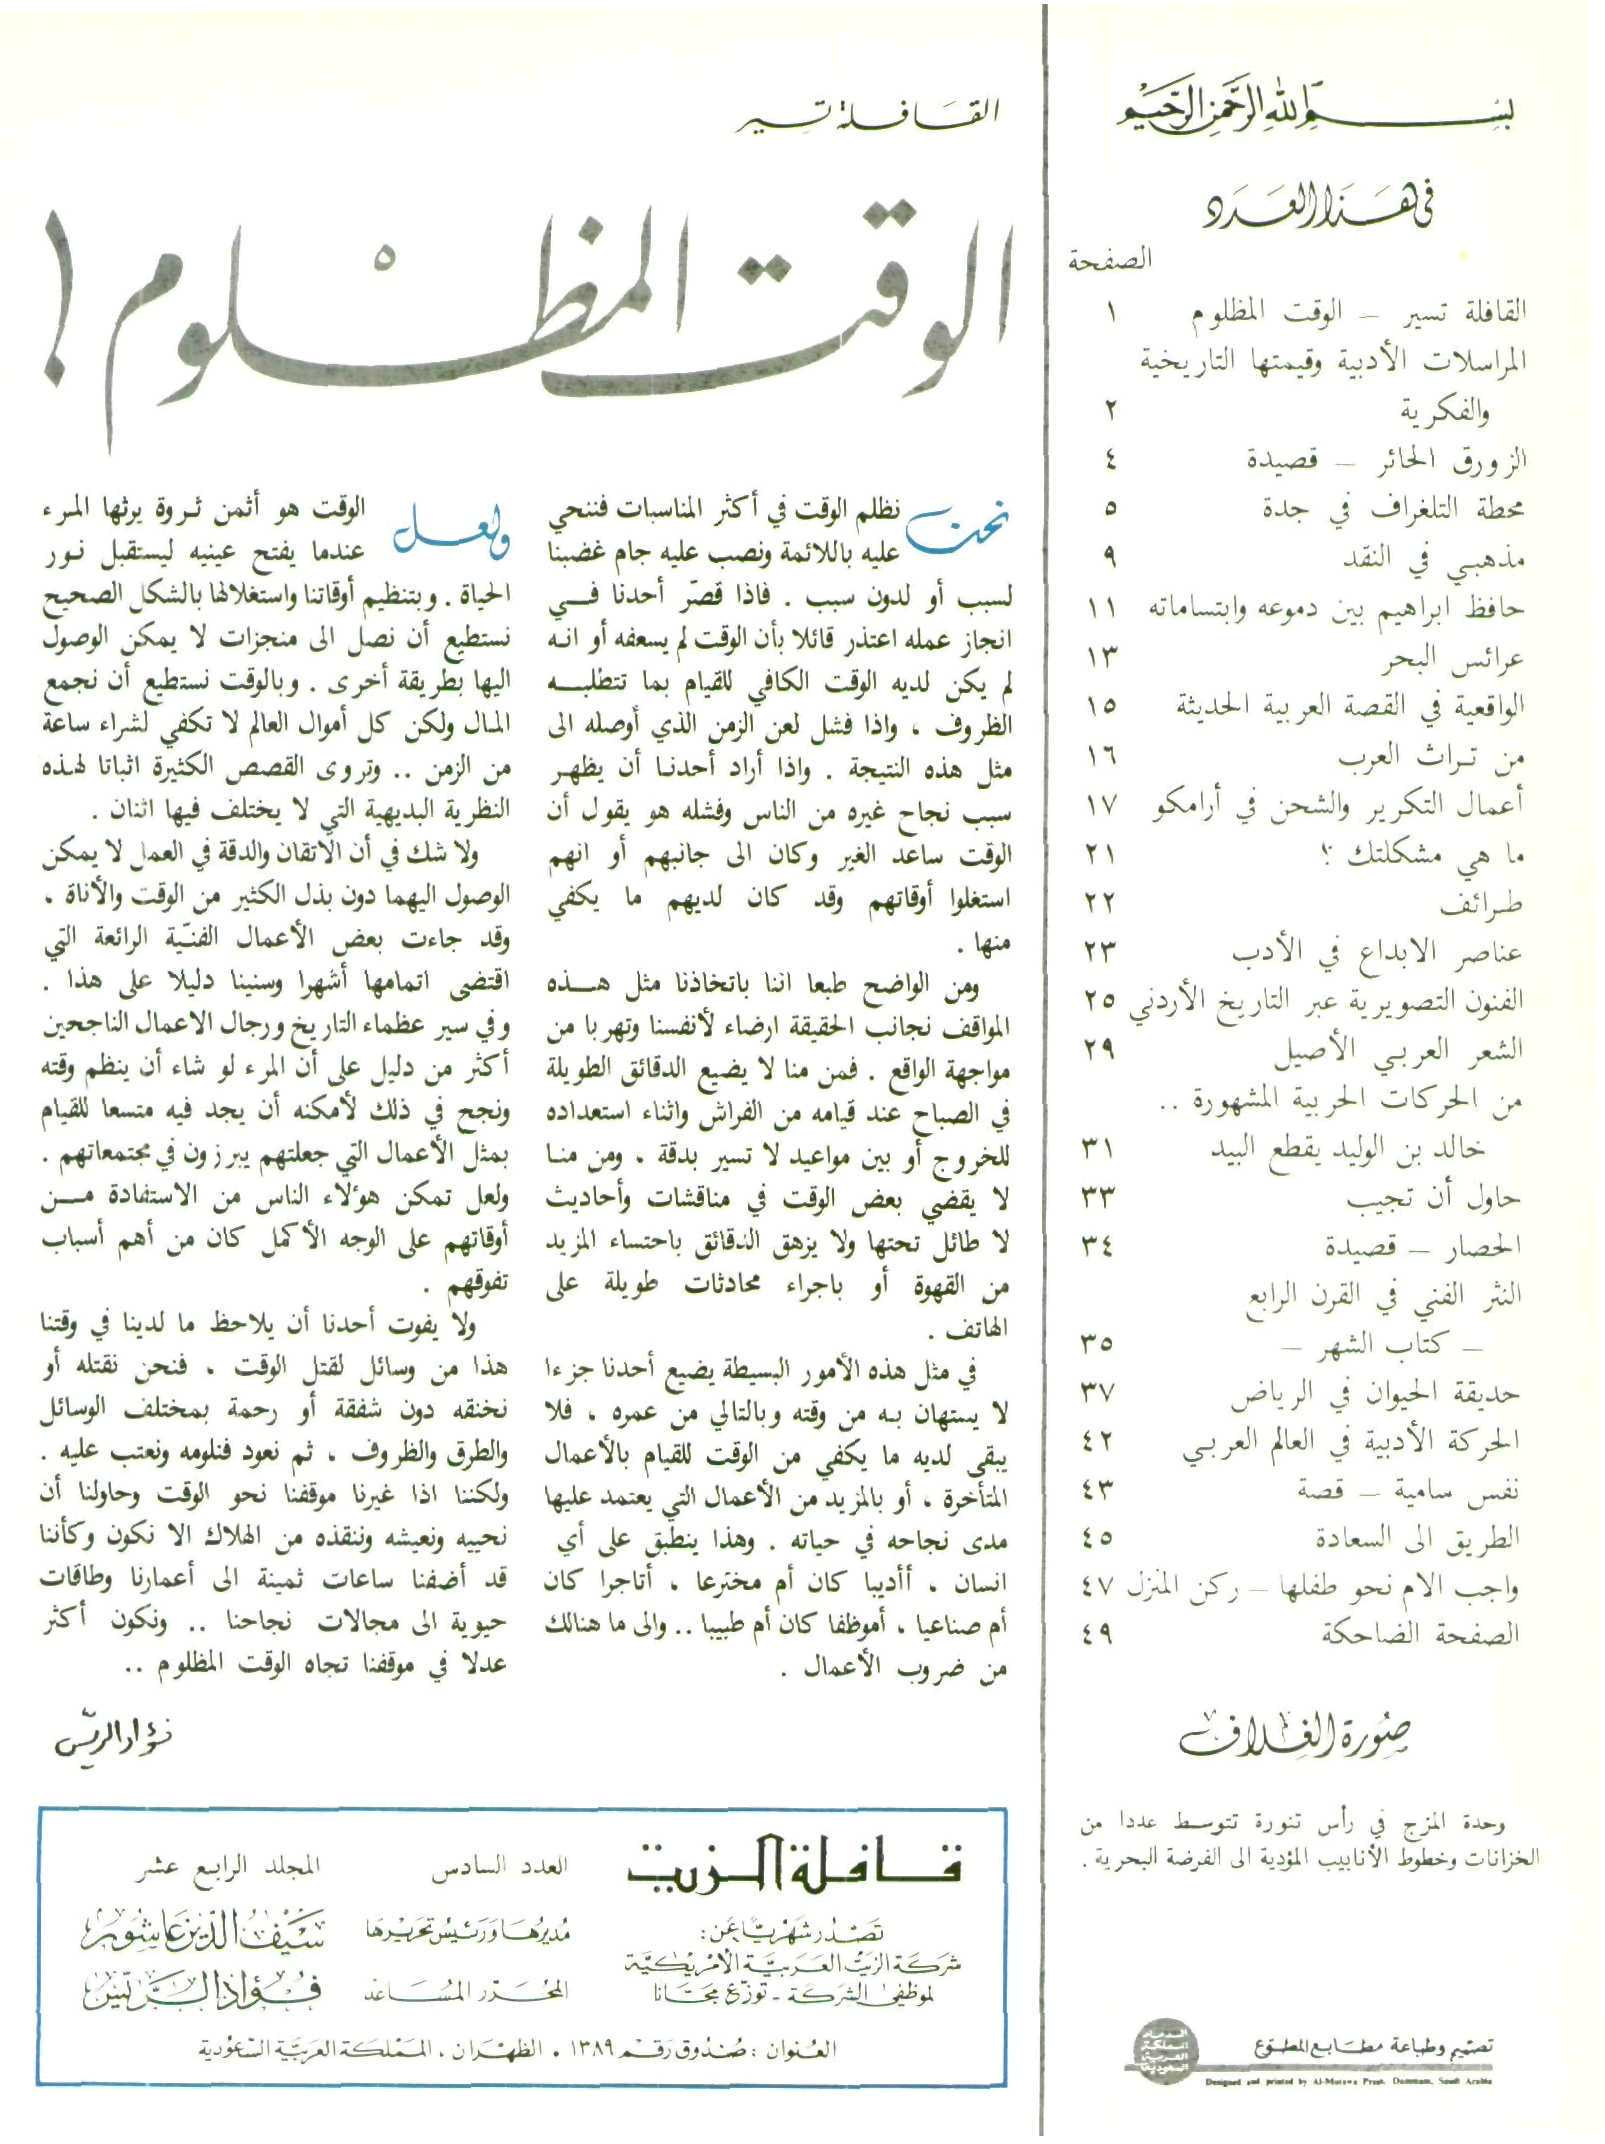 بسم الله الرحمن الرحيم
في هذا العدد
الصفحة
القافلة تسير – الوقت المظلوم ١
المراسلات الأدبية وقيمتها التاريخية
والفكرية ٢
الزورق الحائر – قصيدة ٤
محطة التلغراف في جدة ٥
مذهبي في النقد ٩
حافظ ابراهيم بين دموعه وابتساماته ١١
عرائس البحر ١٣
الواقعية في القصة العربية الحديثة ١٥
من تراث العرب ١٦
أعمال التكرير والشحن في أرامكو ١٧
ما هي مشكلتك ؟ ٢١
طرائف ٢٢
عناصر الابداع في الأدب ٢٣
الفنون التصويرية عبر التاريخ الأردني ٢٥
الشعر العربي الأصيل ٢٩
من الحركات الحربية المشهورة ..
خالد بن الوليد يقطع البيد ٣١
حاول أن تجيب ٣٣
الحصار – قصيدة ٣٤
النثر الفني في القرن الرابع
– كتاب الشهر – ٣٥
حديقة الحيوان في الرياض ٣٧
الحركة الأدبية في العالم العربي ٤٢
نفس سامية – قصة ٤٣
الطريق الى السعادة ٤٥
واجب الام نحو طفلها – ركن المنزل ٤٧
الصفحة الضاحكة ٤٩
صورة الغلاف
وحدة المزج في رأس تنورة تتوسط عددا من
الخزانات وخطوط الأنابيب المؤدية الى الفرضة البحرية .
تصميم وطباعة مطابع المطوع
Designed and printed by Al-Mutawa Press, Dammam, Saudi Arabia
القافلة تسير
الوقت المظلوم !
نحن نظلم الوقت في أكثر المناسبات فننحي
عليه باللائمة ونصب عليه جام غضبنا
لسبب أو لدون سبب . فاذا قصّر أحدنا في
انجاز عمله اعتذر قائلا بأن الوقت لم يسعفه أو انه
لم يكن لديه الوقت الكافي للقيام بما تتطلبه
الظروف ، واذا فشل لعن الزمن الذي أوصله الى
مثل هذه النتيجة . واذا أراد أحدنا أن يظهر
سبب نجاح غيره من الناس وفشله هو يقول أن
الوقت ساعد الغير وكان الى جانبهم أو انهم
استغلوا أوقاتهم وقد كان لديهم ما يكفي
منها .
ومن الواضح طبعا اننا باتخاذنا مثل هذه
المواقف نجانب الحقيقة ارضاء لأنفسنا وتهربا من
مواجهة الواقع . فمن منا لا يضيع الدقائق الطويلة
في الصباح عند قيامه من الفراش واثناء استعداده
للخروج أو بين مواعيد لا تسير بدقة ، ومن منا
لا يقضي بعض الوقت في مناقشات وأحاديث
لا طائل تحتها ولا يزهق الدقائق باحتساء المزيد
من القهوة أو باجراء محادثات طويلة على
الهاتف .
في مثل هذه الأمور البسيطة يضيع أحدنا جزءا
لا يستهان به من وقته وبالتالي من عمره ، فلا
يبقى لديه ما يكفي من الوقت للقيام بالأعمال
المتأخرة ، أو بالمزيد من الأعمال التي يعتمد عليها
مدى نجاحه في حياته . وهذا ينطبق على أي
انسان ، أأديبا كان أم مخترعا ، أتاجرا كان
أم صناعيا ، أموظفا كان أم طبيبا .. والى ما هنالك
من ضروب الأعمال .
ولعل الوقت هو أثمن ثروة يرثها المرء
عندما يفتح عينيه ليستقبل نور
الحياة . وبتنظيم أوقاتنا واستغلالها بالشكل الصحيح
نستطيع أن نصل الى منجزات لا يمكن الوصول
اليها بطريقة أخرى . وبالوقت نستطيع أن نجمع
المال ولكن كل أموال العالم لا تكفي لشراء ساعة
من الزمن .. وتروى القصص الكثيرة اثباتا لهذه
النظرية البديهية التي لا يختلف فيها اثنان .
ولا شك في أن الاتقان والدقة في العمل لا يمكن
الوصول اليهما دون بذل الكثير من الوقت والأناة ،
وقد جاءت بعض الأعمال الفنيّة الرائعة التي
اقتضى اتمامها أشهرا وسنينا دليلا على هذا .
وفي سير عظماء التاريخ ورجال الاعمال الناجحين
أكثر من دليل على أن المرء لو شاء أن ينظم وقته
ونجح في ذلك لأمكنه أن يجد فيه متسعا للقيام
بمثل الأعمال التي جعلتهم يبرزون في مجتمعاتهم .
ولعل تمكن هؤلاء الناس من الاستفادة من
أوقاتهم على الوجه الأكمل كان من أهم أسباب
تفوقهم .
ولا يفوت أحدنا أن يلاحظ ما لدينا في وقتنا
هذا من وسائل لقتل الوقت ، فنحن نقتله أو
نخنقه دون شفقة أو رحمة بمختلف الوسائل
والطرق والظروف ، ثم نعود فنلومه ونعتب عليه .
ولكننا اذا غيرنا موقفنا نحو الوقت وحاولنا أن
نحييه ونعيشه وننقذه من الهلاك الا نكون وكأننا
قد أضفنا ساعات ثمينة الى أعمارنا وطاقات
حيوية الى مجالات نجاحنا .. ونكون أكثر
عدلا في موقفنا تجاه الوقت المظلوم ..
فؤاد الريس
قافلة الزيت العدد السادس المجلد الرابع عشر
تصدر شهريًا عن:
شركة الزيت العربية الأمريكية
لموظفي الشركة - توزع مجانا
مديرها ورئيس تحريرها سيف الدين عاشور
المحرر المساعد فؤاد الريس
العنوان : صندوق رقم ١٣٨٩ ، الظهران ، المملكة العربية السعودية